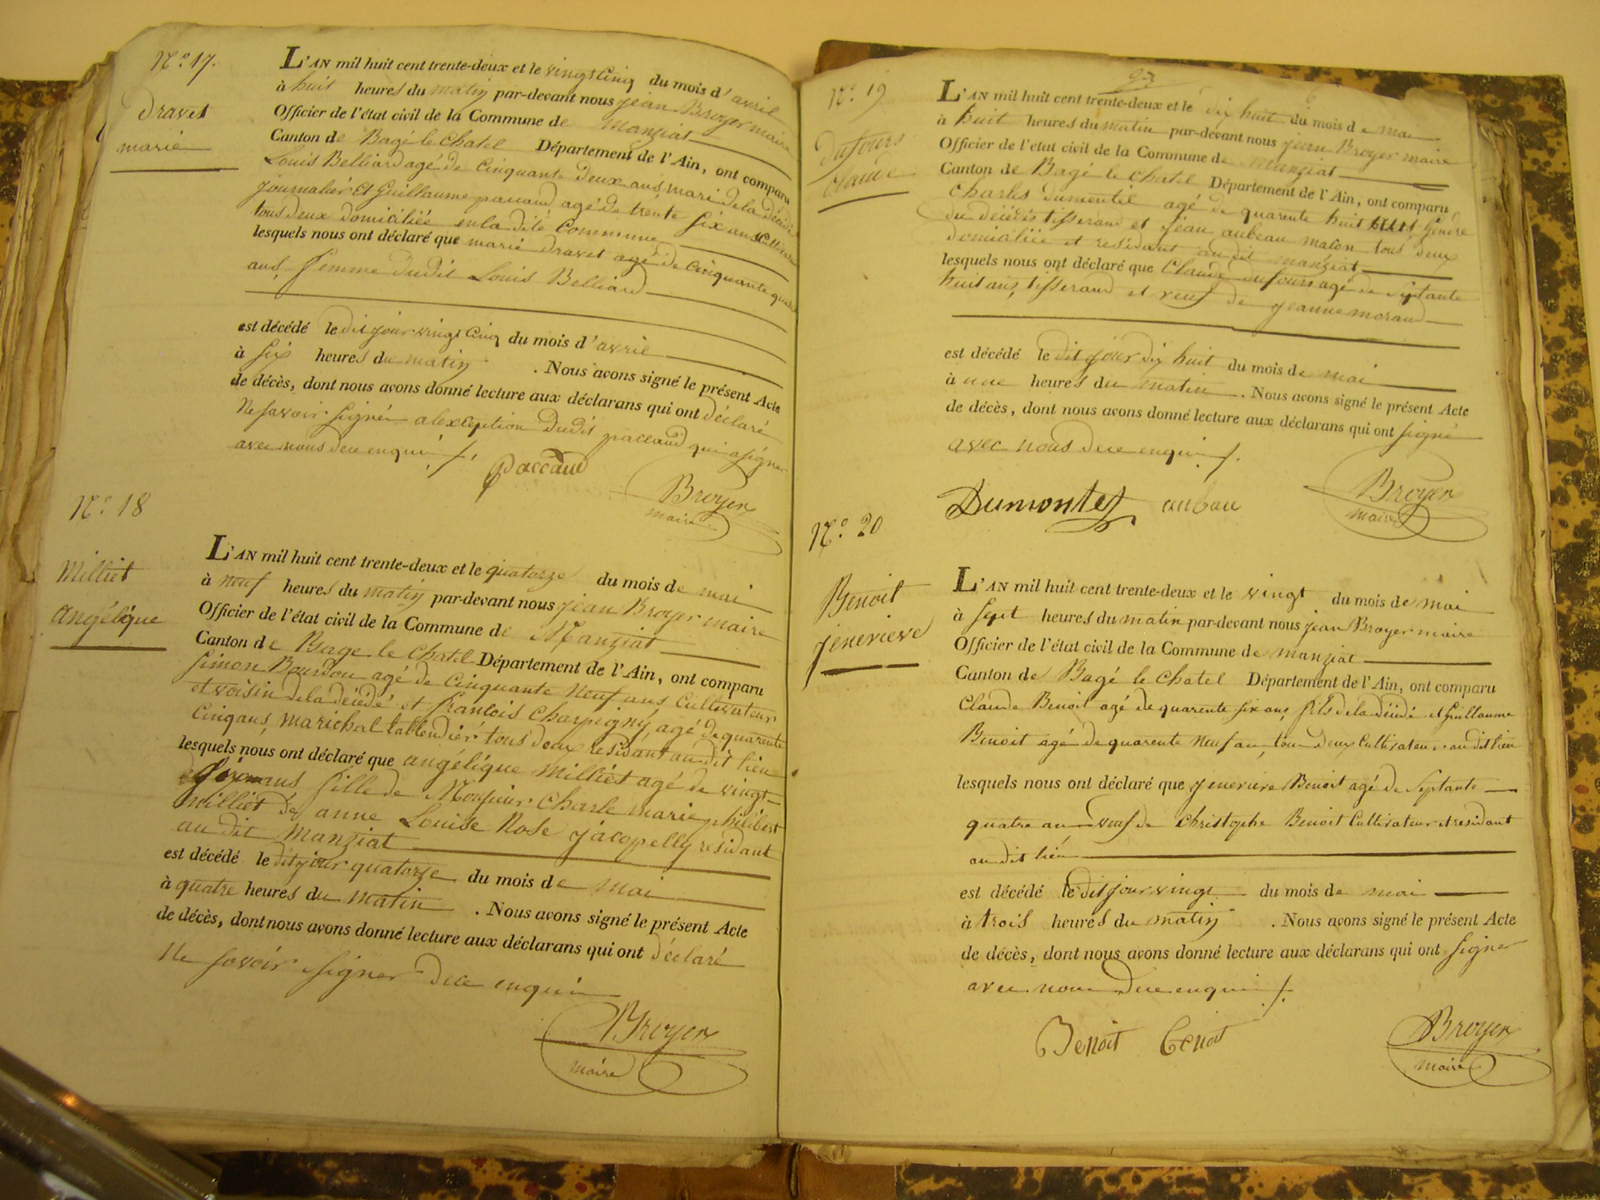 N.º 17.
Dravet
marie
L'AN mil huit cent trente-deux et le vingt cinq du mois d'avril
à huit heures du matin par-devant nous jean Broyer maire
Officier de l'état civil de la Commune de Manziat
Canton de Bagé le chatel Département de l'Ain, ont comparu
Louis Belliard agé de cinquante deux ans, mari de la décédé
journalier et Guillaume paccaud agé de trente six ans cultivateur
tous deux domiciliée en la dite commune
lesquels nous ont déclaré que marie dravet agé de cinquante quatre
ans, femme dudit Louis Belliard
est décédé le dit jour vingt cinq du mois d'avril
à six heures du matin . Nous avons signé le présent Acte
de décès, dont nous avons donné lecture aux déclarans qui ont déclaré
Ne savoir signer a lexception dudit paccaud qui a signer
avec nous de ce enqui /.
paccaud
Broyer
maire
N.º 18
Milliet
angélique
L'AN mil huit cent trente-deux et le quatorze du mois de mai
à neuf heures du matin par-devant nous jean Broyer maire
Officier de l'état civil de la Commune de Manziat
Canton de Bage le chatel Département de l'Ain, ont comparu
Simon Bourdon agé de cinquante neuf ans cultivateur
et voisin de la décédé et francois charpigny, agé de quarante
cinq ans, marichal tallendier tous deux residant au dit lieu
lesquels nous ont déclaré que angélique milliet agé de vingt
ans fille de Monsieur charle marie philibert
milliet de anne Louise Rose jacopelly residant
au dit manziat
est décédé le dit jour quatorze du mois de mai
à quatre heures du matin . Nous avons signé le présent Acte
de décès, dont nous avons donné lecture aux déclarans qui ont déclaré
Ne savoir signer de ce enqui
Broyer
maire
N.º 19
Dufours
claude
L'AN mil huit cent trente-deux et le dix huit du mois de mai
à huit heures du matin par-devant nous jean Broyer maire
Officier de l'état civil de la Commune de manziat
Canton de Bagé le chatel Département de l'Ain, ont comparu
Charles dumontel agé de quarente huit ans gendre
du décédé tisserand et jean aubeau malon tous deux
domiciliée et residant au dit manziat
lesquels nous ont déclaré que Claude dufours agé de septante
huit ans, tisserand et veuf de jeanne morand
est décédé le dit jour dix huit du mois de mai
à une heures du matin . Nous avons signé le présent Acte
de décès, dont nous avons donné lecture aux déclarans qui ont signé
avec nous de ce enqui /.
Dumontel aubau
Broyer
maire
N.º 20
Benoit
jenevieve
L'AN mil huit cent trente-deux et le vingt du mois de mai
à sept heures du matin par-devant nous jean Broyer maire
Officier de l'état civil de la Commune de manziat
Canton de Bagé le chatel Département de l'Ain, ont comparu
Claude Benoit agé de quarente six ans, fils de la décédé et Guillaume
Benoit agé de quarente neuf ans, tous deux cultivateur au dit lieu
lesquels nous ont déclaré que jenevieve Benoit agé de septante
quatre ans veuf de christophe Benoit cultivateur et residant
au dit lieu
est décédé le dit jour vingt du mois de mai
à trois heures du matin . Nous avons signé le présent Acte
de décès, dont nous avons donné lecture aux déclarans qui ont signer
avec nous de ce enqui /.
Benoit Benoit
Broyer
maire